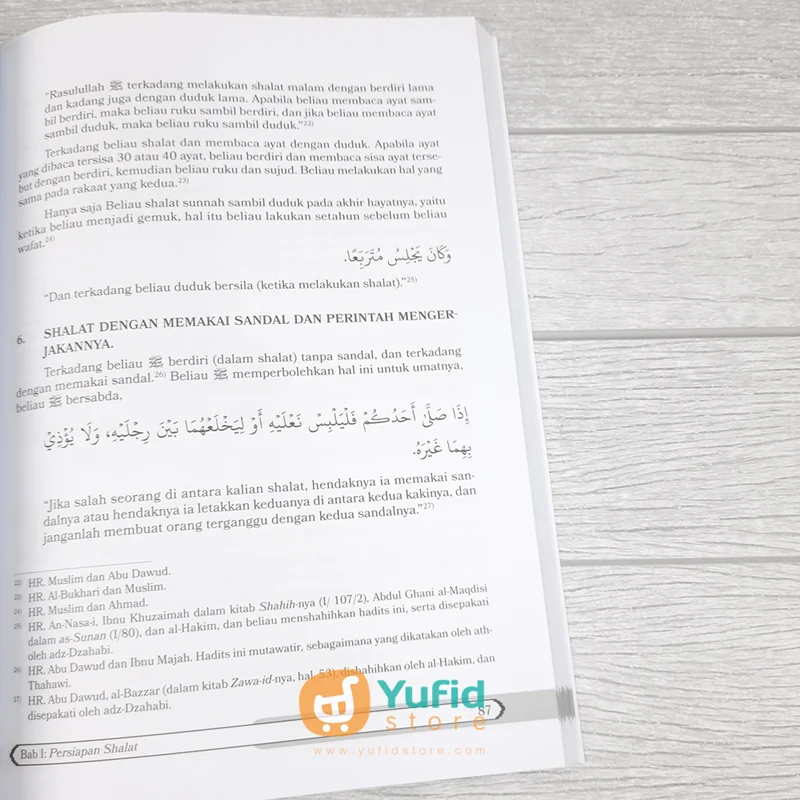 “Rasulullah ﷺ terkadang melakukan shalat malam dengan berdiri lama
dan kadang juga dengan duduk lama. Apabila beliau membaca ayat sam-
bil berdiri, maka beliau ruku sambil berdiri, dan jika beliau membaca ayat
sambil duduk, maka beliau ruku sambil duduk.”22)
Terkadang beliau shalat dan membaca ayat dengan duduk. Apabila ayat
yang dibaca tersisa 30 atau 40 ayat, beliau berdiri dan membaca sisa ayat terse-
but dengan berdiri, kemudian beliau ruku dan sujud. Beliau melakukan hal yang
sama pada rakaat yang kedua.23)
Hanya saja Beliau shalat sunnah sambil duduk pada akhir hayatnya, yaitu
ketika beliau menjadi gemuk, hal itu beliau lakukan setahun sebelum beliau
wafat.24)
وَكَانَ يَجْلِسُ مُتَرَبِّعًا.
“Dan terkadang beliau duduk bersila (ketika melakukan shalat).”25)
6. SHALAT DENGAN MEMAKAI SANDAL DAN PERINTAH MENGER-
JAKANNYA.
Terkadang beliau ﷺ berdiri (dalam shalat) tanpa sandal, dan terkadang
dengan memakai sandal.26) Beliau ﷺ memperbolehkan hal ini untuk umatnya,
beliau ﷺ bersabda,
إِذَا صَلَّى أَحَدُكُمْ فَلْيَلْبِسْ نَعْلَيْهِ أَوْ لِيَخْلَعْهُمَا بَيْنَ رِجْلَيْهِ، وَلَا يُؤْذِيْ
بِهِمَا غَيْرَهُ.
“Jika salah seorang di antara kalian shalat, hendaknya ia memakai san-
dalnya atau hendaknya ia letakkan keduanya di antara kedua kakinya, dan
janganlah membuat orang terganggu dengan kedua sandalnya.”27)
22) HR. Muslim dan Abu Dawud.
23) HR. Al-Bukhari dan Muslim.
24) HR. Muslim dan Ahmad.
25) HR. An-Nasa-i, Ibnu Khuzaimah dalam kitab Shahih-nya (I/ 107/2), Abdul Ghani al-Maqdisi
dalam as-Sunan (I/80), dan al-Hakim, dan beliau menshahihkan hadits ini, serta disepakati
oleh adz-Dzahabi.
26) HR. Abu Dawud dan Ibnu Majah. Hadits ini mutawatir, sebagaimana yang dikatakan oleh ath-
Thahawi.
27) HR. Abu Dawud, al-Bazzar (dalam kitab Zawa-id-nya, hal. 53), dishahihkan oleh al-Hakim, dan
disepakati oleh adz-Dzahabi.
87
Bab I: Persiapan Shalat
Yufid
store
www.yufidstore.com